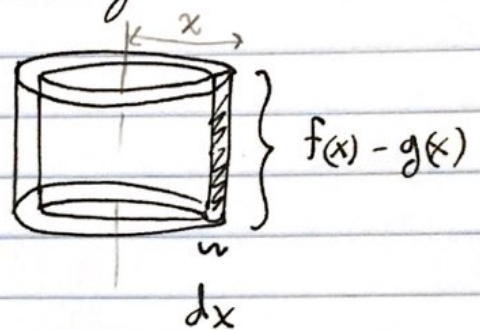 x
f(x) - g(x)
dx